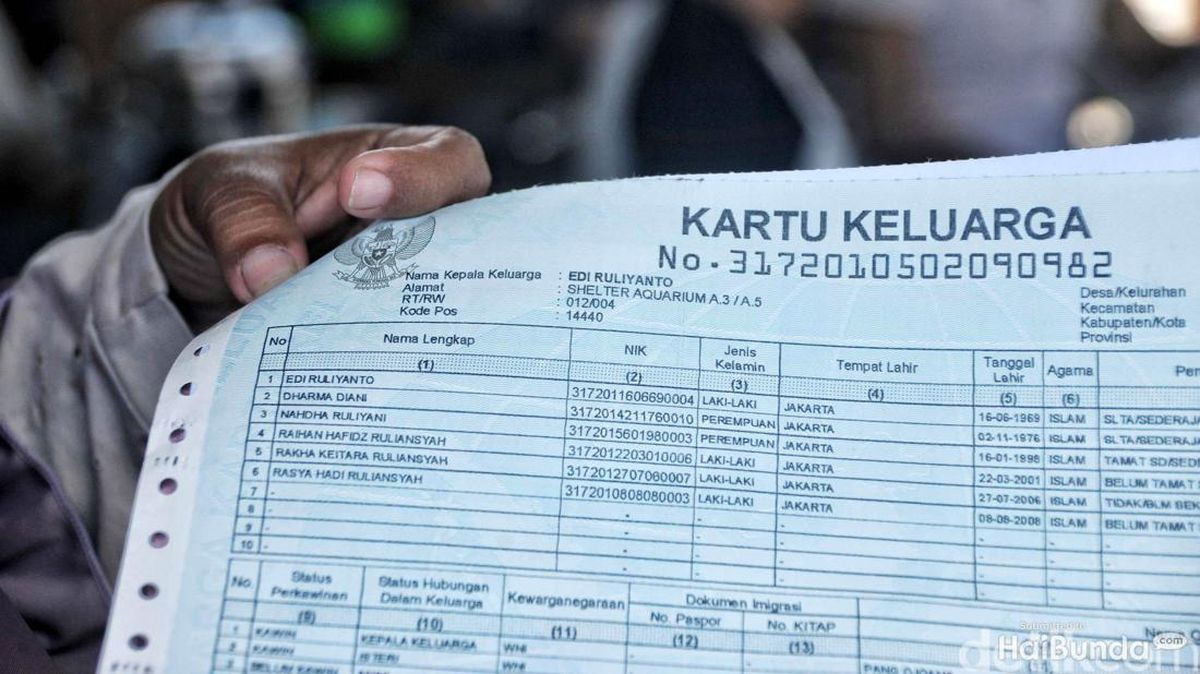 KARTU KELUARGA
No.3172010502090982
Nama Kepala Keluarga : EDI RULIYANTO
Alamat : SHELTER AQUARIUM A.3 / A.5
RT/RW : 012/004
Kode Pos : 14440
Desa/Kelurahan
Kecamatan
Kabupaten/Kota
Provinsi
No Nama Lengkap NIK Jenis Kelamin Tempat Lahir Tanggal Lahir Agama
(1) (2) (3) (4) (5) (6)
1 EDI RULIYANTO 3172011606690004 LAKI-LAKI JAKARTA 16-06-1969 ISLAM SLTA/SEDERAJA
2 DHARMA DIANI 3172014211760010 PEREMPUAN JAKARTA 02-11-1976 ISLAM SLTA/SEDERAJA
3 NAHDHA RULIYANI 3172015601980003 PEREMPUAN JAKARTA 16-01-1998 ISLAM TAMAT SD/SEDERA
4 RAIHAN HAFIDZ RULIANSYAH 3172012203010006 LAKI-LAKI JAKARTA 22-03-2001 ISLAM BELUM TAMAT S
5 RAKHA KEITARA RULIANSYAH 3172012707060007 LAKI-LAKI JAKARTA 27-07-2006 ISLAM TIDAK/BLM SEK
6 RASYA HADI RULIANSYAH 3172010808080003 LAKI-LAKI JAKARTA 08-08-2008 ISLAM BELUM TAMAT
7 -
8 -
9 -
10 -
No. Status Perkawinan Status Hubungan Dalam Keluarga Kewarganegaraan Dokumen Imigrasi
No. Paspor No. KITAP
(9) (10) (11) (12) (13)
1 KAWIN KEPALA KELUARGA WNI
2 KAWIN ISTERI WNI
3 BELUM KAWIN
Submitted to
HaiBunda.com
detikcom